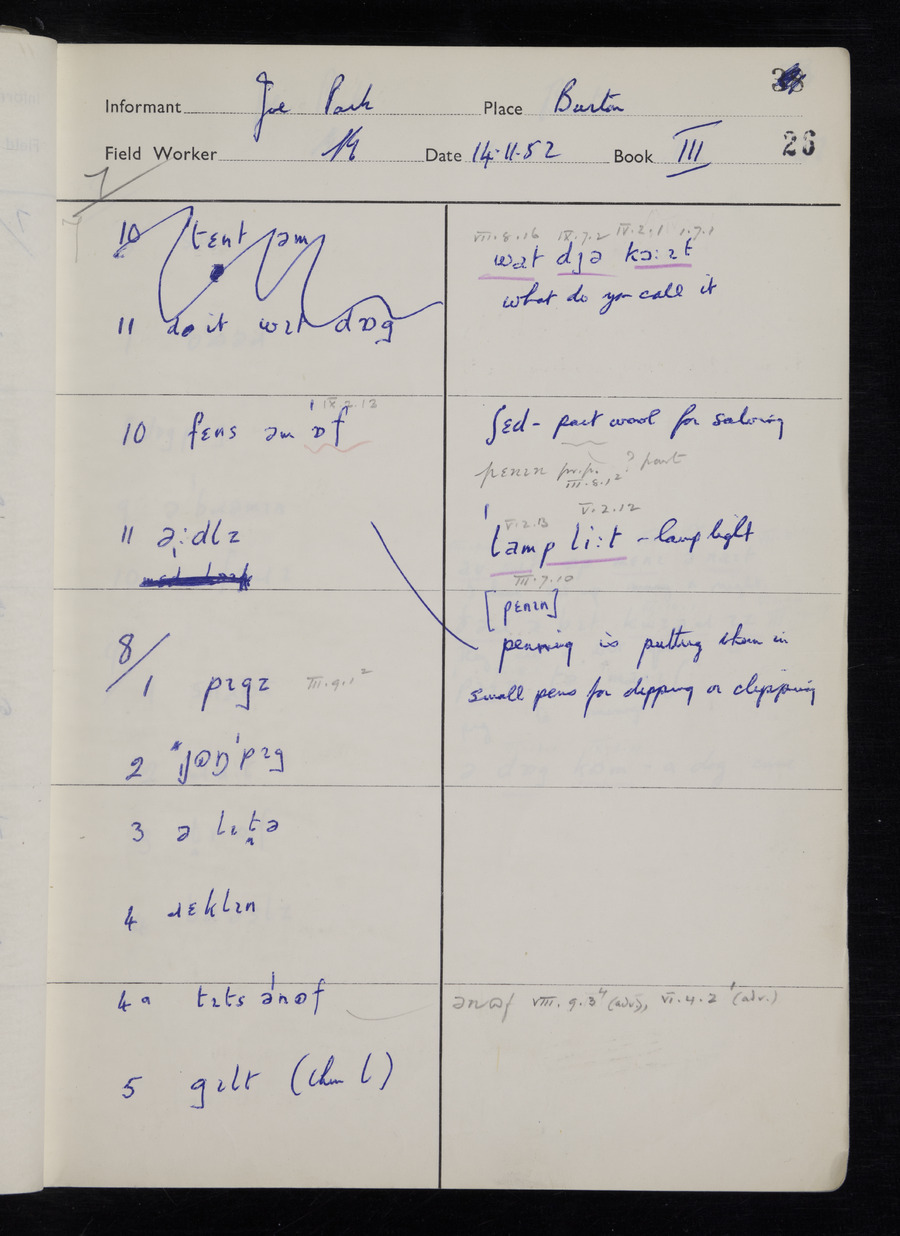 Informant Joe Park Place Burton
Field Worker Date 14.11.52 Book III 26
7/
10 tɛnt əm
11 do it wɪt dɒg
10 fɛns əm ɒf IX.2.13
11 ə:dlz
8/
1 pɪgz III.9.1²
2 jɒŋ pɪg
3 ə lɪtə
4 ɹɛklɪn
4a tɪts ənɒf
5 gɪlt (clear l)
VII.8.16 IX.7.2 IV.2.1 1.7.1
wat djə kɔ:ɪt
what do you call it
ʃɛd - part wool for salving
penɪn pr.p. III.8.12 ? part
V.2.13 V.2.12
lamp li:t - lamp light
III.7.10
[penɪn]
penning is putting them in
small pens for dipping or clipping
ənɒf VIII.9.3⁴ (adv.), VI.4.2¹ (adv.)